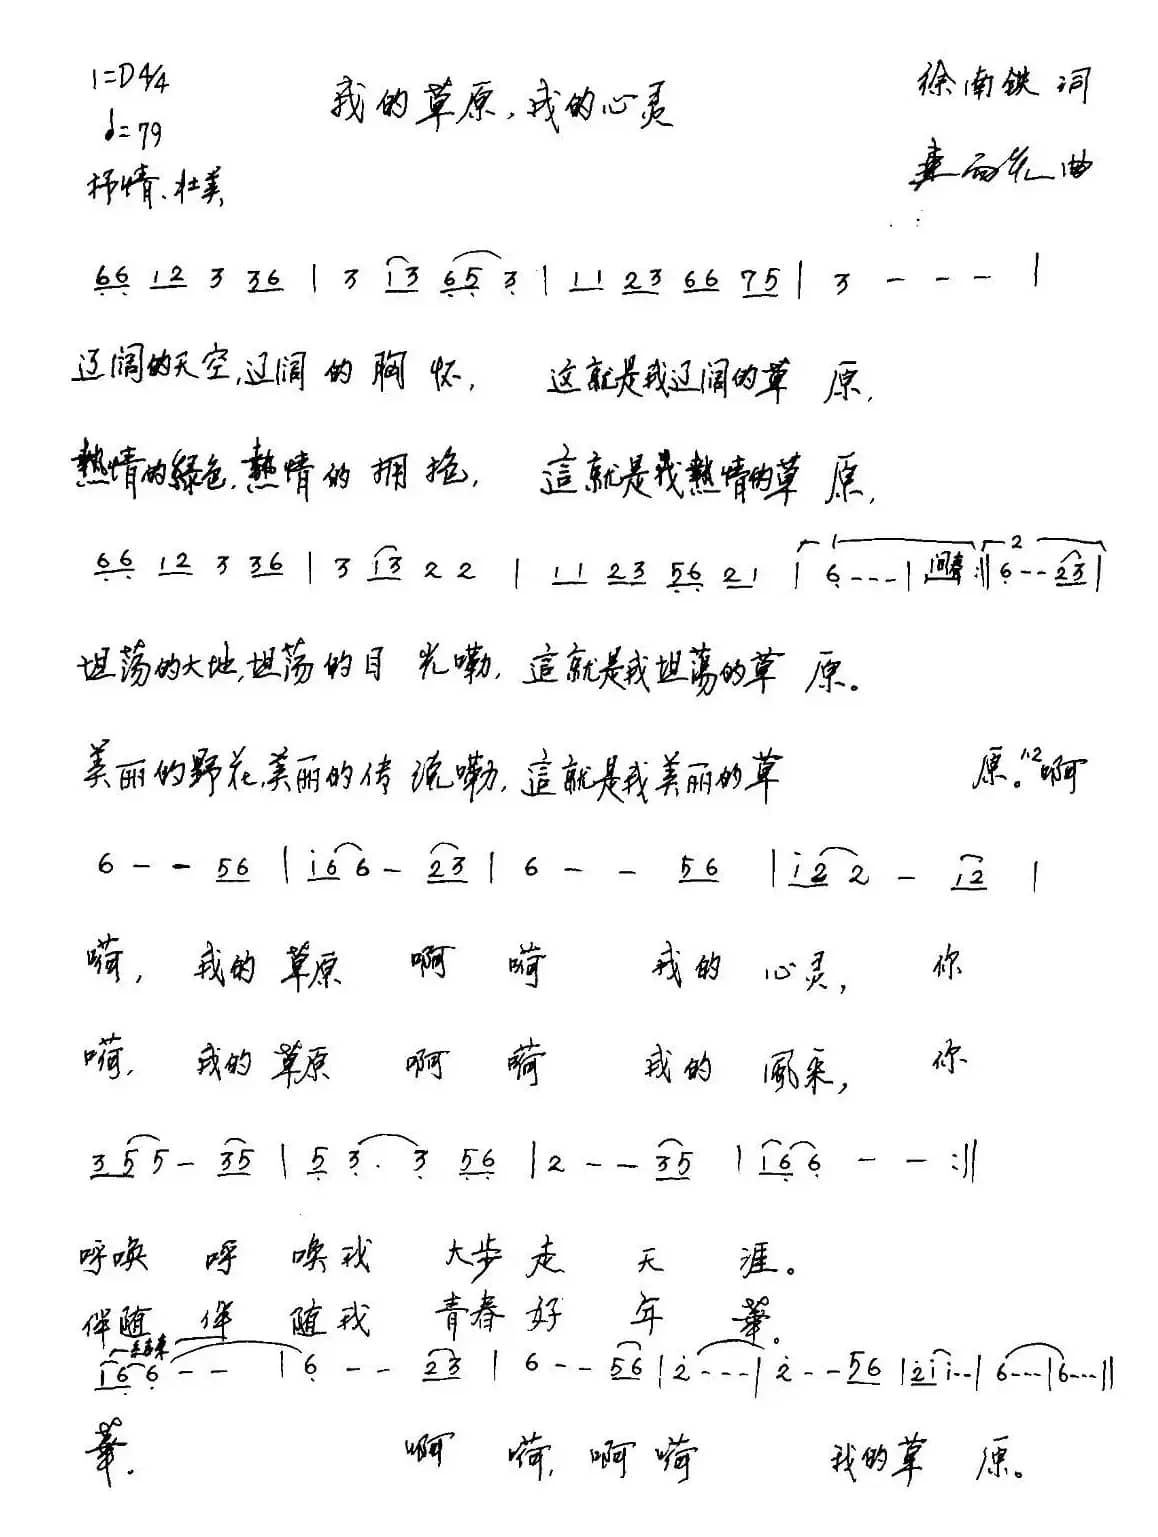 1=D 4/4
我的草原,我的心灵
徐南铁 词
♩=79
曲
抒情、壮美
66 12 3 36 | 3 13 65 3 | 11 23 66 75 | 3 - - - |
辽阔的天空,辽阔的胸怀, 这就是我辽阔的草原,
熱情的緑色,熱情的拥抱, 這就是我熱情的草原,
66 12 3 36 | 3 13 2 2 | 11 23 56 21 | 1 6 - - - | 间奏 :|| 2 6 - - 23 |
坦荡的大地,坦荡的目光嘞, 這就是我坦蕩的草原。
美丽的野花,美丽的传说嘞, 這就是我美丽的草原。1.2啊
6 - - 56 | i6 6 - 23 | 6 - - 56 | i2 2 - i2 |
嗬, 我的草原 啊 嗬 我的心灵, 你
嗬, 我的草原 啊 嗬 我的風采, 你
35 5 - 35 | 5 3 · 3 56 | 2 - - 35 | 16 6 - - :||
呼唤 呼唤我 大步走天涯。
伴随 伴随我 青春好年華。
结束
16 6 - - | 6 - - 23 | 6 - - 56 | 2 - - - | 2 - - 56 | 2i i - - | 6 - - - | 6 - - - ||
華. 啊 嗬, 啊 嗬 我的草原。